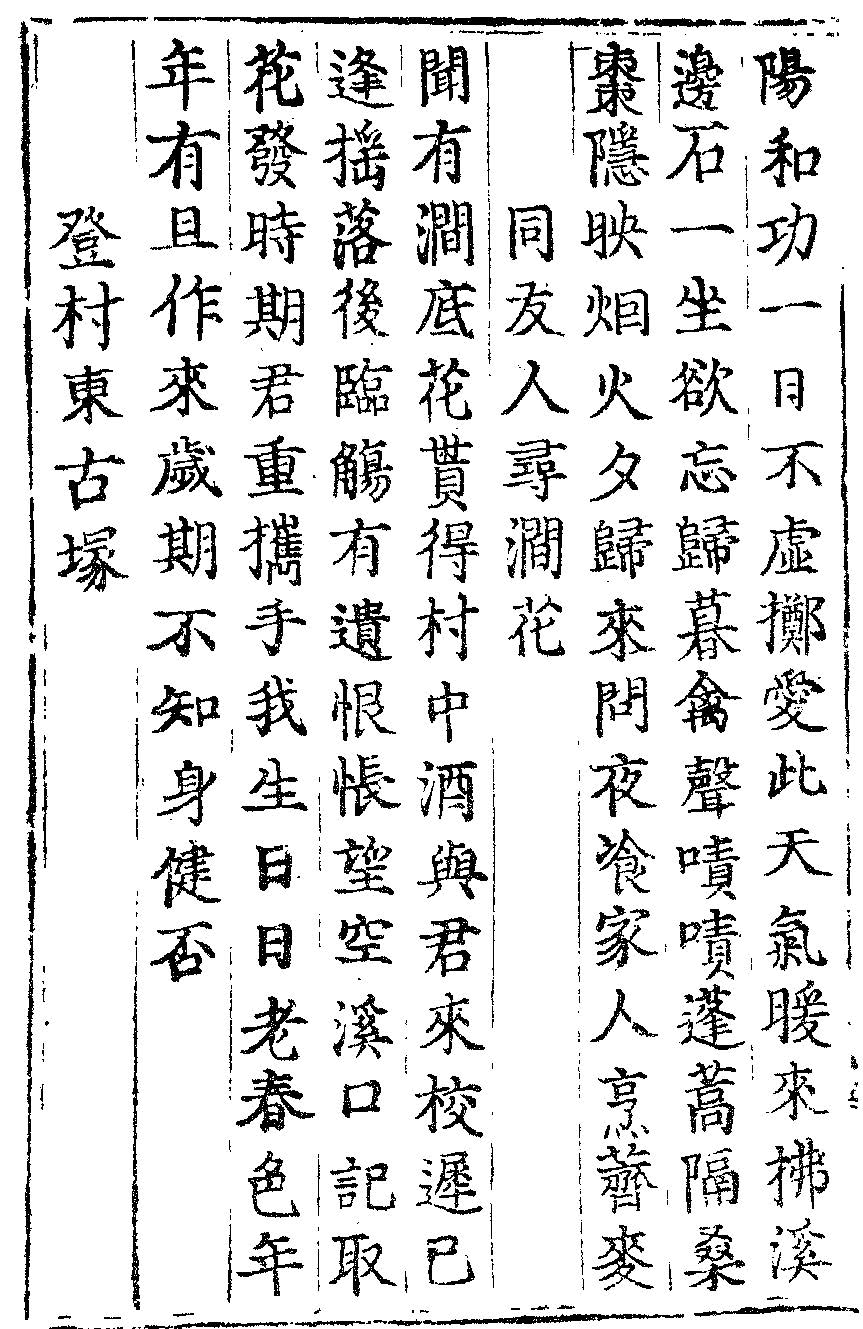 陽和功一日不虛擲愛此天氣暖來拂溪
邊石一坐欲忘歸暮禽聲嘖嘖蓬蒿隔桑
棗隱映烟火夕歸來問夜飡家人烹薺麥
同友人尋澗花
聞有澗底花貰得村中酒與君來校遲已
逢搖落後臨觴有遺恨悵望空溪口記取
花發時期君重攜手我生日日老春色年
年有且作來歲期不知身健否
登村東古塚